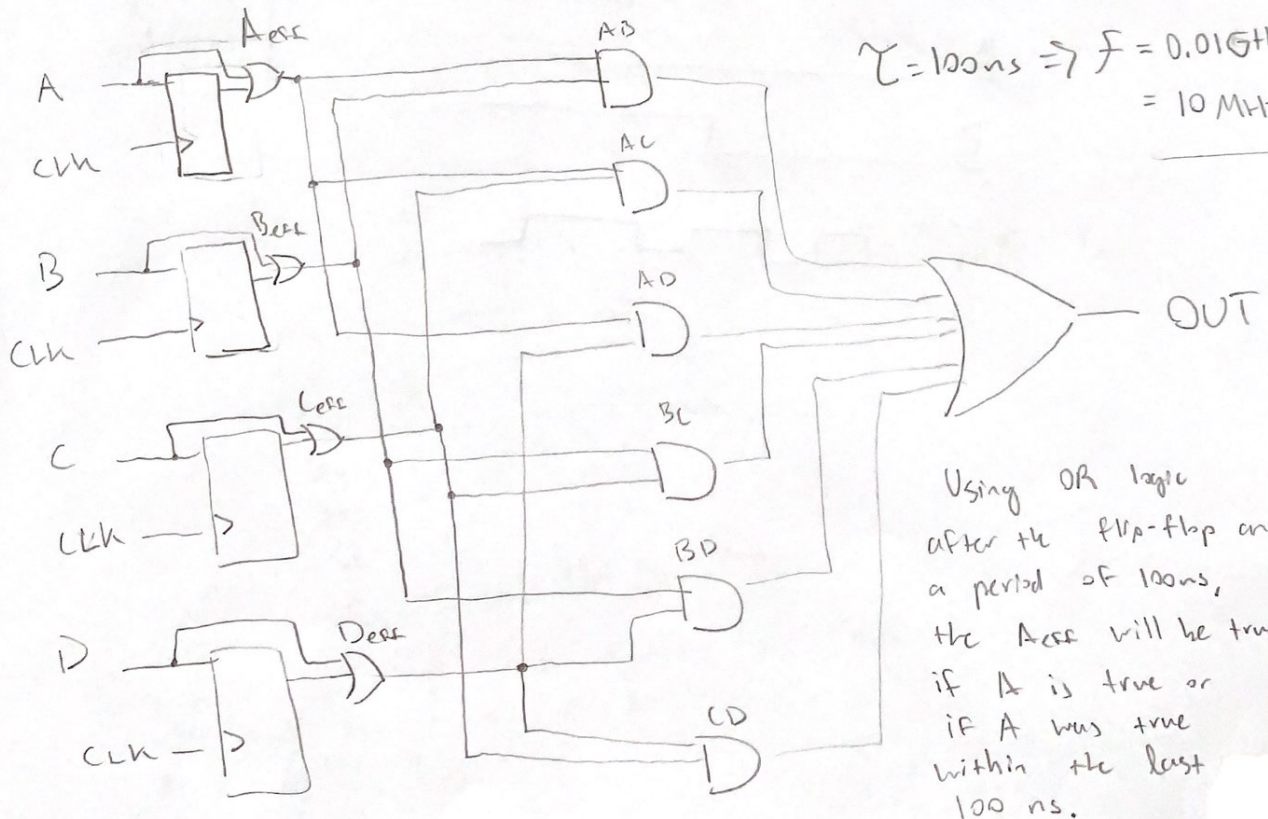 A
Aeff
CLK
B
Beff
CLK
C
Ceff
CLK
D
Deff
CLK
AB
AC
AD
BC
BD
CD
τ = 100ns ⇒ f = 0.01GH
= 10 MH
OUT
Using OR logic
after the flip-flop an
a period of 100ns,
the Aeff will be tru
if A is true or
if A was true
within the last
100 ns.